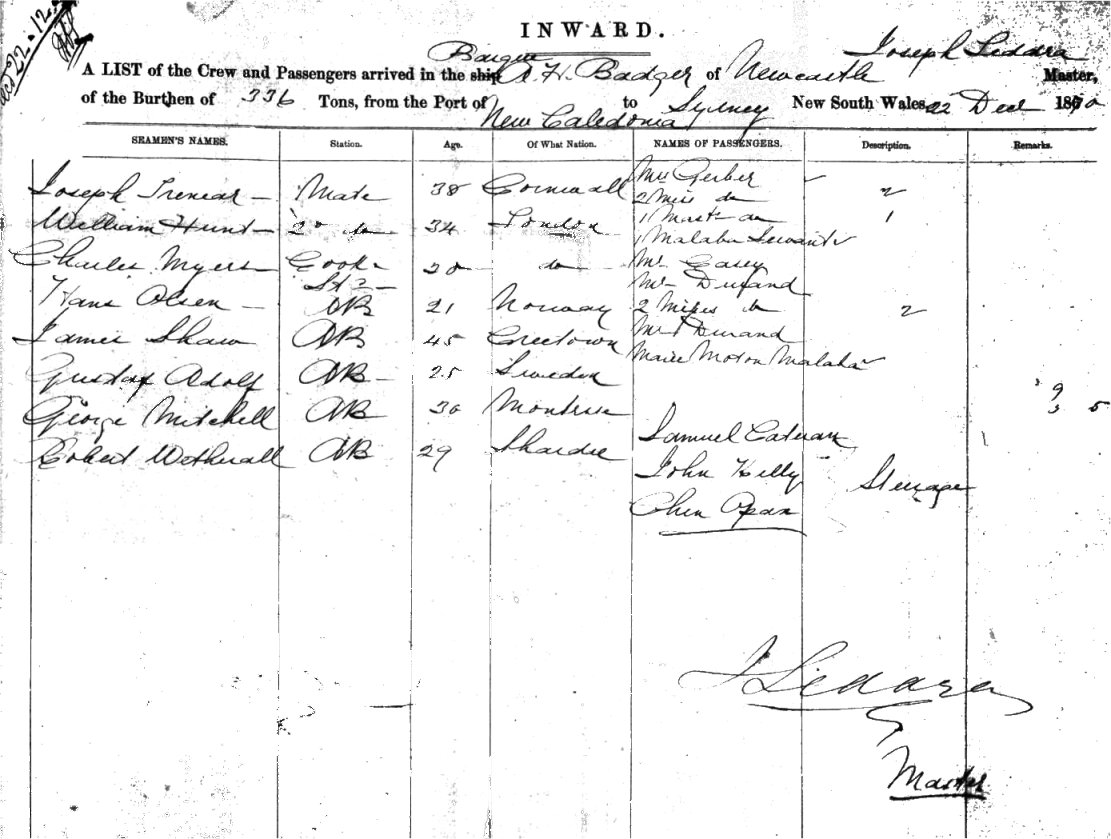 22.12.
INWARD.
Barque Joseph Siddara
A LIST of the Crew and Passengers arrived in the ship A. H. Badger of Newcastle Master,
of the Burthen of 336 Tons, from the Port of New Caledonia to Sydney New South Wales 22 Decr 1870
SEAMEN'S NAMES. Station. Age. Of What Nation. NAMES OF PASSENGERS. Description. Remarks.
Joseph Trenear Mate 38 Cornwall Mrs Gerber
2 Miss do 2
William Hunt 2nd do 34 London 1 Mast do 1
1 Malabar Servant
Charles Myers Cook & Std 20 do Mr Casey
Mr Durand
Hans Olsen AB 21 Norway 2 Misses do 2
James Shaw AB 45 Creetown Mr Durand
Marie Malabar
Gustaf Adolf AB 25 Sweden
George Mitchell AB 30 Montrose
9
5
Samuel
Robert Wetherall AB 29 John Kelly Steerage
Chen Apan
J Siddara
Master